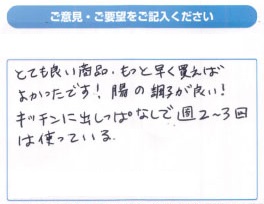 ご意見・ご要望をご記入ください
とても良い商品、もっと早く買えば
よかったです！腸の調子が良い！
キッチンに出しっぱなしで週2〜3回
は使っている。